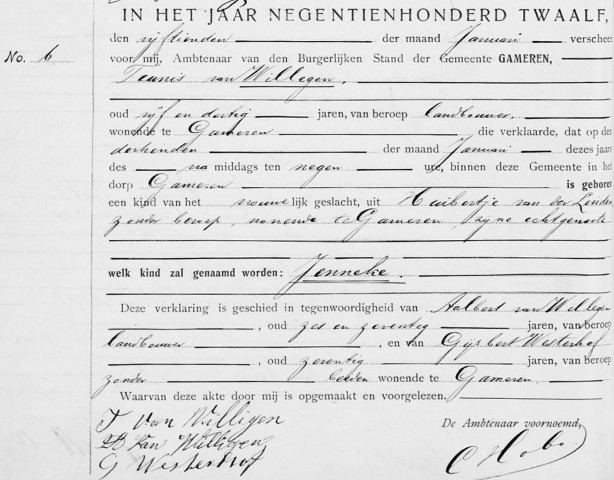 IN HET JAAR NEGENTIENHONDERD TWAALF,
den vijftienden der maand Januari verscheen
No. 6 voor mij, Ambtenaar van den Burgerlijken Stand der Gemeente GAMEREN,
Teunis van Willegen,
oud vijf en dertig jaren, van beroep landbouwer,
wonende te Gameren die verklaarde, dat op den
dertienden der maand Januari dezes jaars
des na middags ten negen ure, binnen deze Gemeente in het
dorp Gameren is geboren
een kind van het vrouwelijk geslacht, uit Huibertje van der Linden
zonder beroep, wonende te Gameren, zijne echtgenoote
welk kind zal genaamd worden: Jenneke.
Deze verklaring is geschied in tegenwoordigheid van Aalbert van Willegen
, oud zes en zeventig jaren, van beroep
landbouwer , en van Gijsbert Westerhof
, oud zeventig jaren, van beroep
zonder beiden wonende te Gameren.
Waarvan deze akte door mij is opgemaakt en voorgelezen.
T Van Willigen
De Ambtenaar voornoemd,
van Willigen
G Westerhof